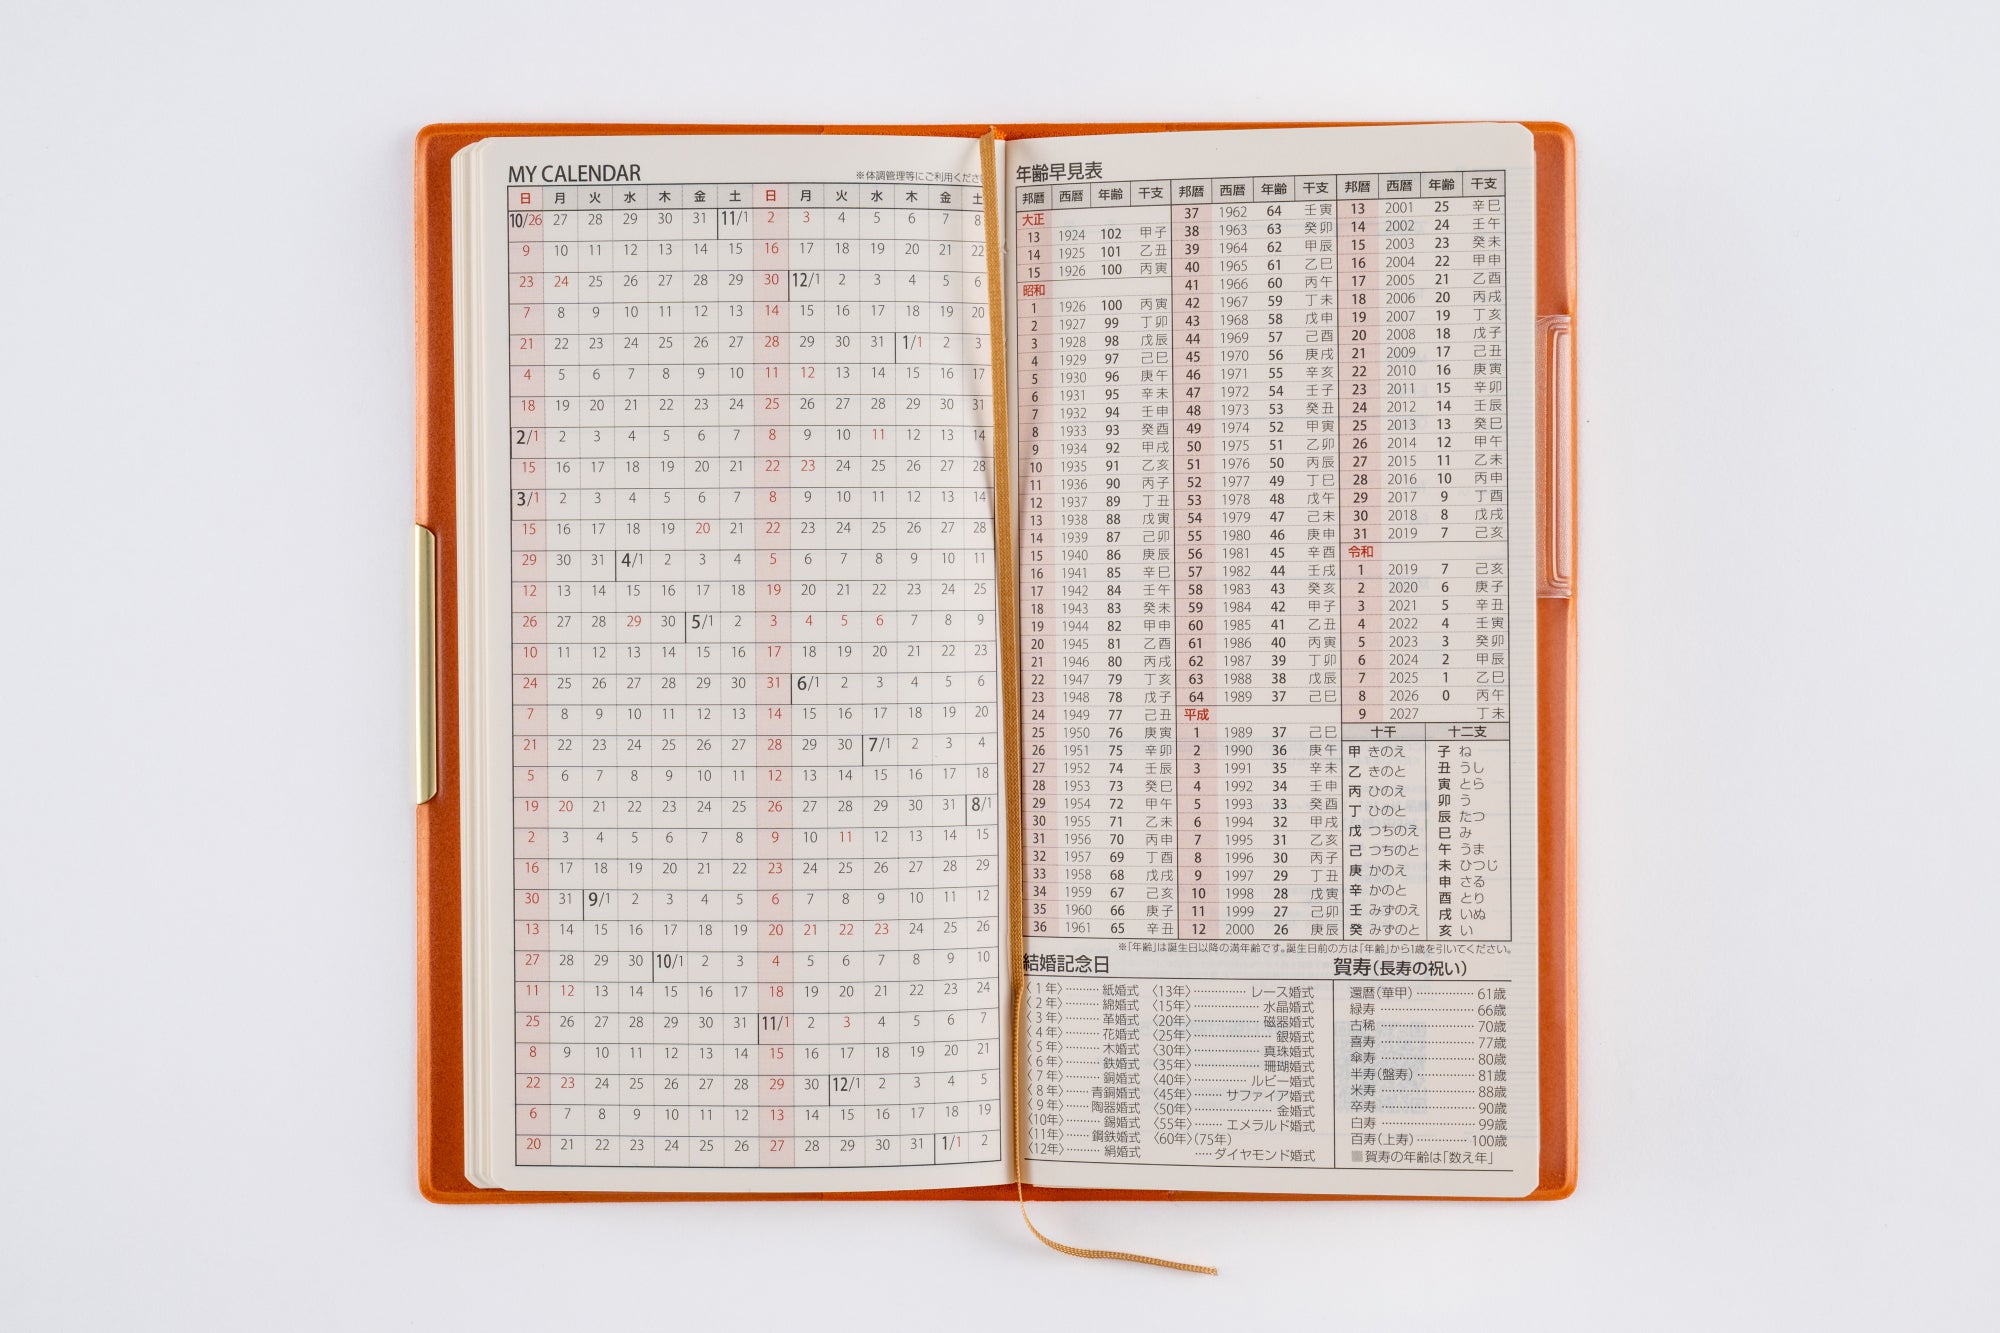 MY CALENDAR
※体調管理等にご利用くださ
日 月 火 水 木 金 土 日 月 火 水 木 金 土
10/26 27 28 29 30 31 11/1 2 3 4 5 6 7 8
9 10 11 12 13 14 15 16 17 18 19 20 21 22
23 24 25 26 27 28 29 30 12/1 2 3 4 5 6
7 8 9 10 11 12 13 14 15 16 17 18 19 20
21 22 23 24 25 26 27 28 29 30 31 1/1 2 3
4 5 6 7 8 9 10 11 12 13 14 15 16 17
18 19 20 21 22 23 24 25 26 27 28 29 30 31
2/1 2 3 4 5 6 7 8 9 10 11 12 13 14
15 16 17 18 19 20 21 22 23 24 25 26 27 28
3/1 2 3 4 5 6 7 8 9 10 11 12 13 14
15 16 17 18 19 20 21 22 23 24 25 26 27 28
29 30 31 4/1 2 3 4 5 6 7 8 9 10 11
12 13 14 15 16 17 18 19 20 21 22 23 24 25
26 27 28 29 30 5/1 2 3 4 5 6 7 8 9
10 11 12 13 14 15 16 17 18 19 20 21 22 23
24 25 26 27 28 29 30 31 6/1 2 3 4 5 6
7 8 9 10 11 12 13 14 15 16 17 18 19 20
21 22 23 24 25 26 27 28 29 30 7/1 2 3 4
5 6 7 8 9 10 11 12 13 14 15 16 17 18
19 20 21 22 23 24 25 26 27 28 29 30 31 8/1
2 3 4 5 6 7 8 9 10 11 12 13 14 15
16 17 18 19 20 21 22 23 24 25 26 27 28 29
30 31 9/1 2 3 4 5 6 7 8 9 10 11 12
13 14 15 16 17 18 19 20 21 22 23 24 25 26
27 28 29 30 10/1 2 3 4 5 6 7 8 9 10
11 12 13 14 15 16 17 18 19 20 21 22 23 24
25 26 27 28 29 30 31 11/1 2 3 4 5 6 7
8 9 10 11 12 13 14 15 16 17 18 19 20 21
22 23 24 25 26 27 28 29 30 12/1 2 3 4 5
6 7 8 9 10 11 12 13 14 15 16 17 18 19
20 21 22 23 24 25 26 27 28 29 30 31 1/1 2
年齢早見表
邦暦 西暦 年齢 干支
大正
13 1924 102 甲子
14 1925 101 乙丑
15 1926 100 丙寅
昭和
1 1926 100 丙寅
2 1927 99 丁卯
3 1928 98 戊辰
4 1929 97 己巳
5 1930 96 庚午
6 1931 95 辛未
7 1932 94 壬申
8 1933 93 癸酉
9 1934 92 甲戌
10 1935 91 乙亥
11 1936 90 丙子
12 1937 89 丁丑
13 1938 88 戊寅
14 1939 87 己卯
15 1940 86 庚辰
16 1941 85 辛巳
17 1942 84 壬午
18 1943 83 癸未
19 1944 82 甲申
20 1945 81 乙酉
21 1946 80 丙戌
22 1947 79 丁亥
23 1948 78 戊子
24 1949 77 己丑
25 1950 76 庚寅
26 1951 75 辛卯
27 1952 74 壬辰
28 1953 73 癸巳
29 1954 72 甲午
30 1955 71 乙未
31 1956 70 丙申
32 1957 69 丁酉
33 1958 68 戊戌
34 1959 67 己亥
35 1960 66 庚子
36 1961 65 辛丑
邦暦 西暦 年齢 干支
37 1962 64 壬寅
38 1963 63 癸卯
39 1964 62 甲辰
40 1965 61 乙巳
41 1966 60 丙午
42 1967 59 丁未
43 1968 58 戊申
44 1969 57 己酉
45 1970 56 庚戌
46 1971 55 辛亥
47 1972 54 壬子
48 1973 53 癸丑
49 1974 52 甲寅
50 1975 51 乙卯
51 1976 50 丙辰
52 1977 49 丁巳
53 1978 48 戊午
54 1979 47 己未
55 1980 46 庚申
56 1981 45 辛酉
57 1982 44 壬戌
58 1983 43 癸亥
59 1984 42 甲子
60 1985 41 乙丑
61 1986 40 丙寅
62 1987 39 丁卯
63 1988 38 戊辰
64 1989 37 己巳
平成
1 1989 37 己巳
2 1990 36 庚午
3 1991 35 辛未
4 1992 34 壬申
5 1993 33 癸酉
6 1994 32 甲戌
7 1995 31 乙亥
8 1996 30 丙子
9 1997 29 丁丑
10 1998 28 戊寅
11 1999 27 己卯
12 2000 26 庚辰
邦暦 西暦 年齢 干支
13 2001 25 辛巳
14 2002 24 壬午
15 2003 23 癸未
16 2004 22 甲申
17 2005 21 乙酉
18 2006 20 丙戌
19 2007 19 丁亥
20 2008 18 戊子
21 2009 17 己丑
22 2010 16 庚寅
23 2011 15 辛卯
24 2012 14 壬辰
25 2013 13 癸巳
26 2014 12 甲午
27 2015 11 乙未
28 2016 10 丙申
29 2017 9 丁酉
30 2018 8 戊戌
31 2019 7 己亥
令和
1 2019 7 己亥
2 2020 6 庚子
3 2021 5 辛丑
4 2022 4 壬寅
5 2023 3 癸卯
6 2024 2 甲辰
7 2025 1 乙巳
8 2026 0 丙午
9 2027 丁未
十干
甲 きのえ
乙 きのと
丙 ひのえ
丁 ひのと
戊 つちのえ
己 つちのと
庚 かのえ
辛 かのと
壬 みずのえ
癸 みずのと
十二支
子 ね
丑 うし
寅 とら
卯 う
辰 たつ
巳 み
午 うま
未 ひつじ
申 さる
酉 とり
戌 いぬ
亥 い
※「年齢」は誕生日以降の満年齢です。誕生日前の方は「年齢」から1歳を引いてください。
結婚記念日
〈1年〉………紙婚式
〈2年〉………綿婚式
〈3年〉………革婚式
〈4年〉………花婚式
〈5年〉………木婚式
〈6年〉………鉄婚式
〈7年〉………銅婚式
〈8年〉……青銅婚式
〈9年〉……陶器婚式
〈10年〉………錫婚式
〈11年〉……鋼鉄婚式
〈12年〉………絹婚式
〈13年〉…………レース婚式
〈15年〉……………水晶婚式
〈20年〉……………磁器婚式
〈25年〉………………銀婚式
〈30年〉……………真珠婚式
〈35年〉……………珊瑚婚式
〈40年〉…………ルビー婚式
〈45年〉……サファイア婚式
〈50年〉………………金婚式
〈55年〉……エメラルド婚式
〈60年〉(75年)
……ダイヤモンド婚式
賀寿(長寿の祝い)
還暦(華甲)……………61歳
緑寿……………………66歳
古稀……………………70歳
喜寿……………………77歳
傘寿……………………80歳
半寿(盤寿)……………81歳
米寿……………………88歳
卒寿……………………90歳
白寿……………………99歳
百寿(上寿)…………100歳
■賀寿の年齢は「数え年」